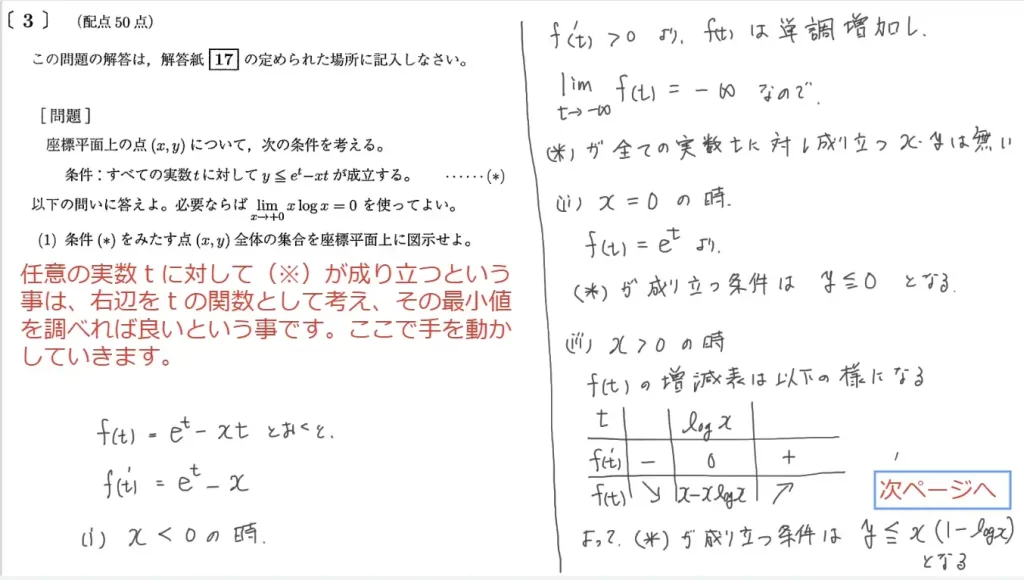 〔 3 〕 （配点 50 点）
この問題の解答は，解答紙 17 の定められた場所に記入しなさい。
［問題］
座標平面上の点 (x, y) について，次の条件を考える。
条件：すべての実数 t に対して y ≦ e^t−xt が成立する。 ……(*)
以下の問いに答えよ。必要ならば lim_{x→+0} x log x = 0 を使ってよい。
(1) 条件 (*) をみたす点 (x, y) 全体の集合を座標平面上に図示せよ。
任意の実数ｔに対して（※）が成り立つという
事は、右辺をｔの関数として考え、その最小値
を調べれば良いという事です。ここで手を動か
していきます。
f(t) = e^t − xt とおくと、
f'(t) = e^t − x
(i) x < 0 の時、
f'(t) > 0 より、f(t) は単調増加し、
lim_{t→−∞} f(t) = −∞ なので、
(*) が全ての実数tに対し成り立つx・yは無い
(ii) x = 0 の時、
f(t) = e^t より、
(*) が成り立つ条件は y ≦ 0 となる。
(iii) x > 0 の時
f(t) の増減表は以下の様になる
t log x
f'(t) − 0 +
f(t) ↘ x−xlogx ↗
次ページへ
よって、(*) が成り立つ条件は y ≦ x (1−logx)
となる